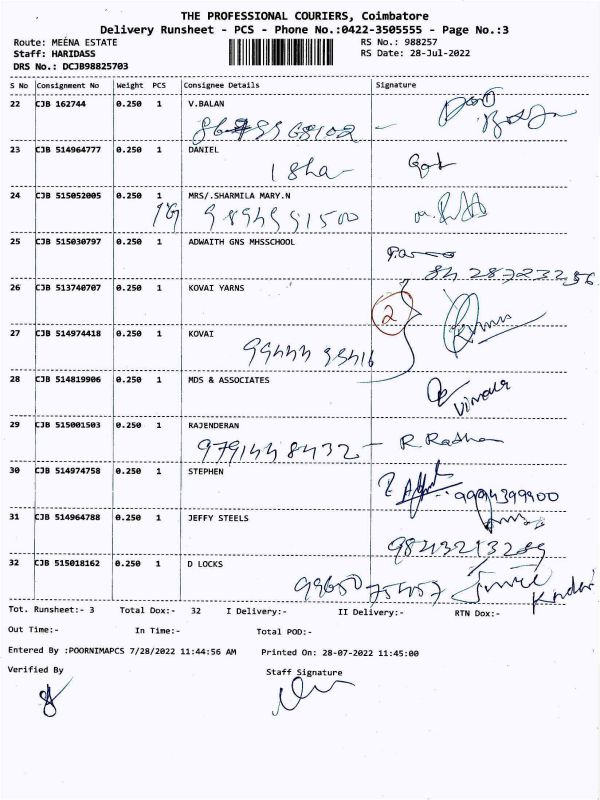 THE PROFESSIONAL COURIERS, Coimbatore
Delivery Runsheet - PCS - Phone No.:0422-3505555 - Page No.:3
Route: MEENA ESTATE RS No.: 988257
Staff: HARIDASS RS Date: 28-Jul-2022
DRS No.: DCJB98825703
S No Consignment No Weight PCS Consignee Details Signature
22 CJB 162744 0.250 1 V.BALAN
23 CJB 514964777 0.250 1 DANIEL
24 CJB 515052005 0.250 1 MRS/.SHARMILA MARY.N
25 CJB 515030797 0.250 1 ADWAITH GNS MHSSCHOOL
26 CJB 513740707 0.250 1 KOVAI YARNS
2
27 CJB 514974418 0.250 1 KOVAI
99444 95416
28 CJB 514819906 0.250 1 MDS & ASSOCIATES
Vimala
29 CJB 515001503 0.250 1 RAJENDERAN
9791448432 - R. Radha
30 CJB 514974758 0.250 1 STEPHEN
9994399900
31 CJB 514964788 0.250 1 JEFFY STEELS
9843213289
32 CJB 515018162 0.250 1 D LOCKS
99650 75457
Tot. Runsheet:- 3 Total Dox:- 32 I Delivery:- II Delivery:- RTN Dox:-
Out Time:- In Time:- Total POD:-
Entered By :POORNIMAPCS 7/28/2022 11:44:56 AM Printed On: 28-07-2022 11:45:00
Verified By Staff Signature